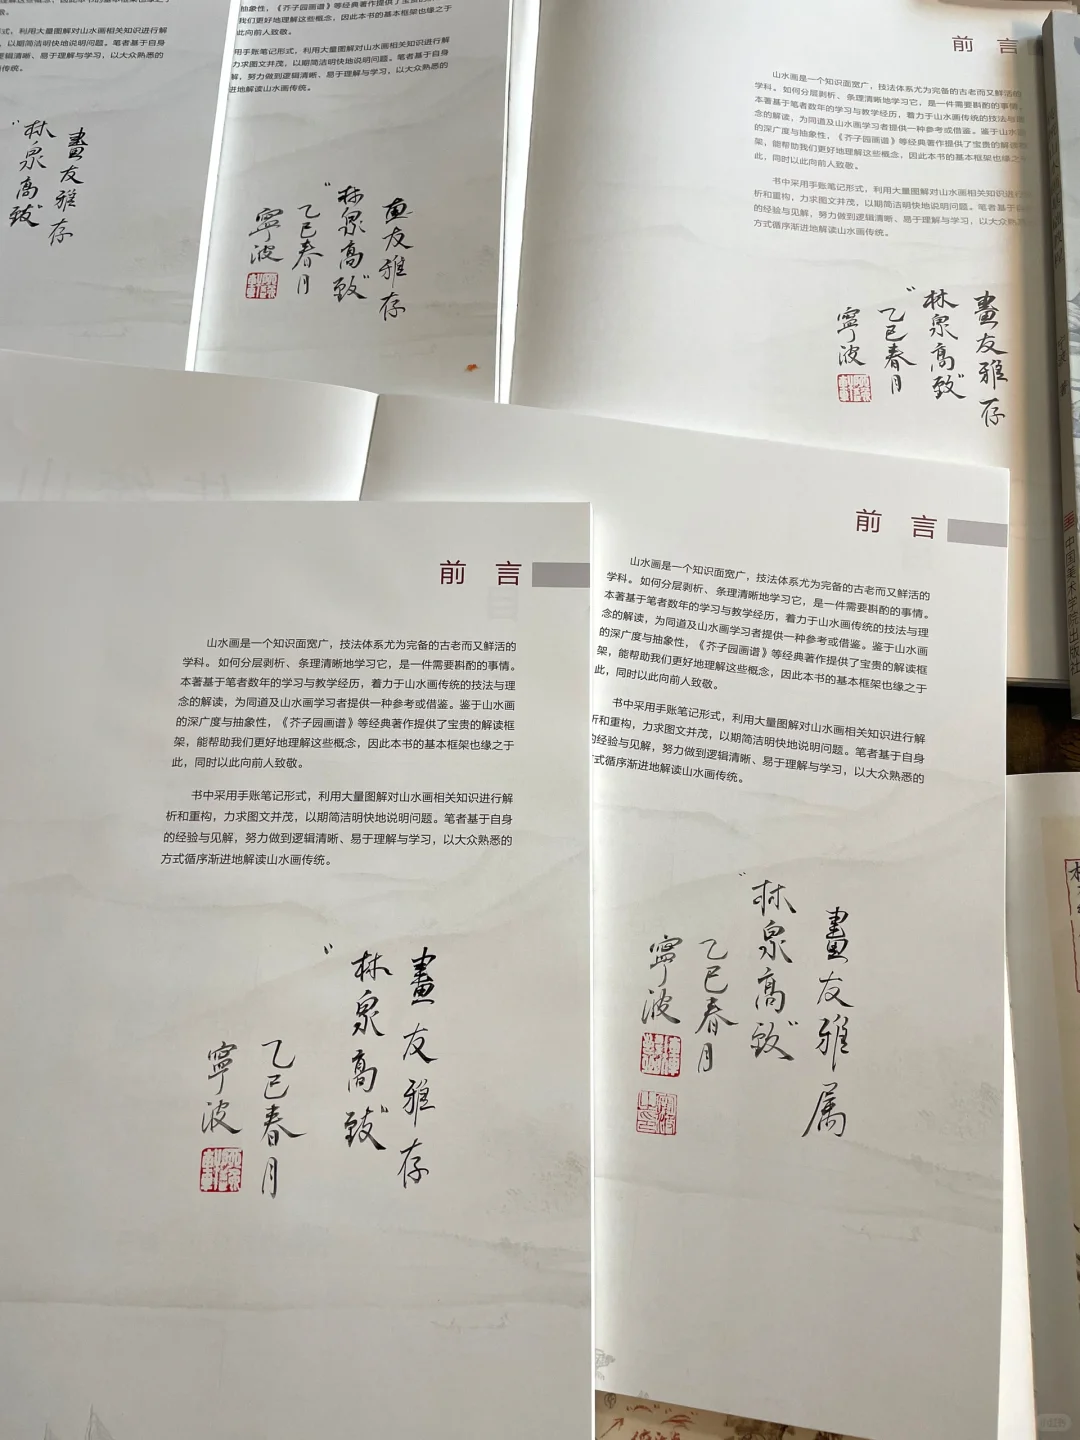 式，利用大量图解对山水画相关知识进行解
，以期简洁明快地说明问题。笔者基于自身
逻辑清晰、易于理解与学习，以大众熟悉的
传统。
畫友雅存
“林泉高致
抽象性，《芥子园画谱》等经典著作提供了宝贵的解读框
我们更好地理解这些概念，因此本书的基本框架也缘之于
此向前人致敬。
用手账笔记形式，利用大量图解对山水画相关知识进行解
力求图文并茂，以期简洁明快地说明问题。笔者基于自身
解，努力做到逻辑清晰、易于理解与学习，以大众熟悉的
进地解读山水画传统。
画友雅存
“林泉高致”
乙巳春月
寧波
前言
山水画是一个知识面宽广，技法体系尤为完备的古老而又鲜活的
学科。如何分层剥析、条理清晰地学习它，是一件需要斟酌的事情。
本著基于笔者数年的学习与教学经历，着力于山水画传统的技法与理
念的解读，为同道及山水画学习者提供一种参考或借鉴。鉴于山水画
的深广度与抽象性，《芥子园画谱》等经典著作提供了宝贵的解读框
架，能帮助我们更好地理解这些概念，因此本书的基本框架也缘之于
此，同时以此向前人致敬。
书中采用手账笔记形式，利用大量图解对山水画相关知识进行
析和重构，力求图文并茂，以期简洁明快地说明问题。笔者基于
的经验与见解，努力做到逻辑清晰、易于理解与学习，以大众
方式循序渐进地解读山水画传统。
畫友雅存
“林泉高致”
乙巳春月
寧波
中国美术学院出版社
前言
山水画是一个知识面宽广，技法体系尤为完备的古老而又鲜活的
学科。如何分层剥析、条理清晰地学习它，是一件需要斟酌的事情。
本著基于笔者数年的学习与教学经历，着力于山水画传统的技法与理
念的解读，为同道及山水画学习者提供一种参考或借鉴。鉴于山水画
的深广度与抽象性，《芥子园画谱》等经典著作提供了宝贵的解读框
架，能帮助我们更好地理解这些概念，因此本书的基本框架也缘之于
此，同时以此向前人致敬。
书中采用手账笔记形式，利用大量图解对山水画相关知识进行解
析和重构，力求图文并茂，以期简洁明快地说明问题。笔者基于自身
的经验与见解，努力做到逻辑清晰、易于理解与学习，以大众熟悉的
方式循序渐进地解读山水画传统。
畫友雅存
“林泉高致”
乙巳春月
寧波
前言
山水画是一个知识面宽广，技法体系尤为完备的古老而又鲜活的
学科。如何分层剥析、条理清晰地学习它，是一件需要斟酌的事情。
本著基于笔者数年的学习与教学经历，着力于山水画传统的技法与理
念的解读，为同道及山水画学习者提供一种参考或借鉴。鉴于山水画
的深广度与抽象性，《芥子园画谱》等经典著作提供了宝贵的解读框
架，能帮助我们更好地理解这些概念，因此本书的基本框架也缘之于
此，同时以此向前人致敬。
书中采用手账笔记形式，利用大量图解对山水画相关知识进行解
析和重构，力求图文并茂，以期简洁明快地说明问题。笔者基于自身
的经验与见解，努力做到逻辑清晰、易于理解与学习，以大众熟悉的
式循序渐进地解读山水画传统。
畫友雅属
“林泉高致”
乙巳春月
寧波